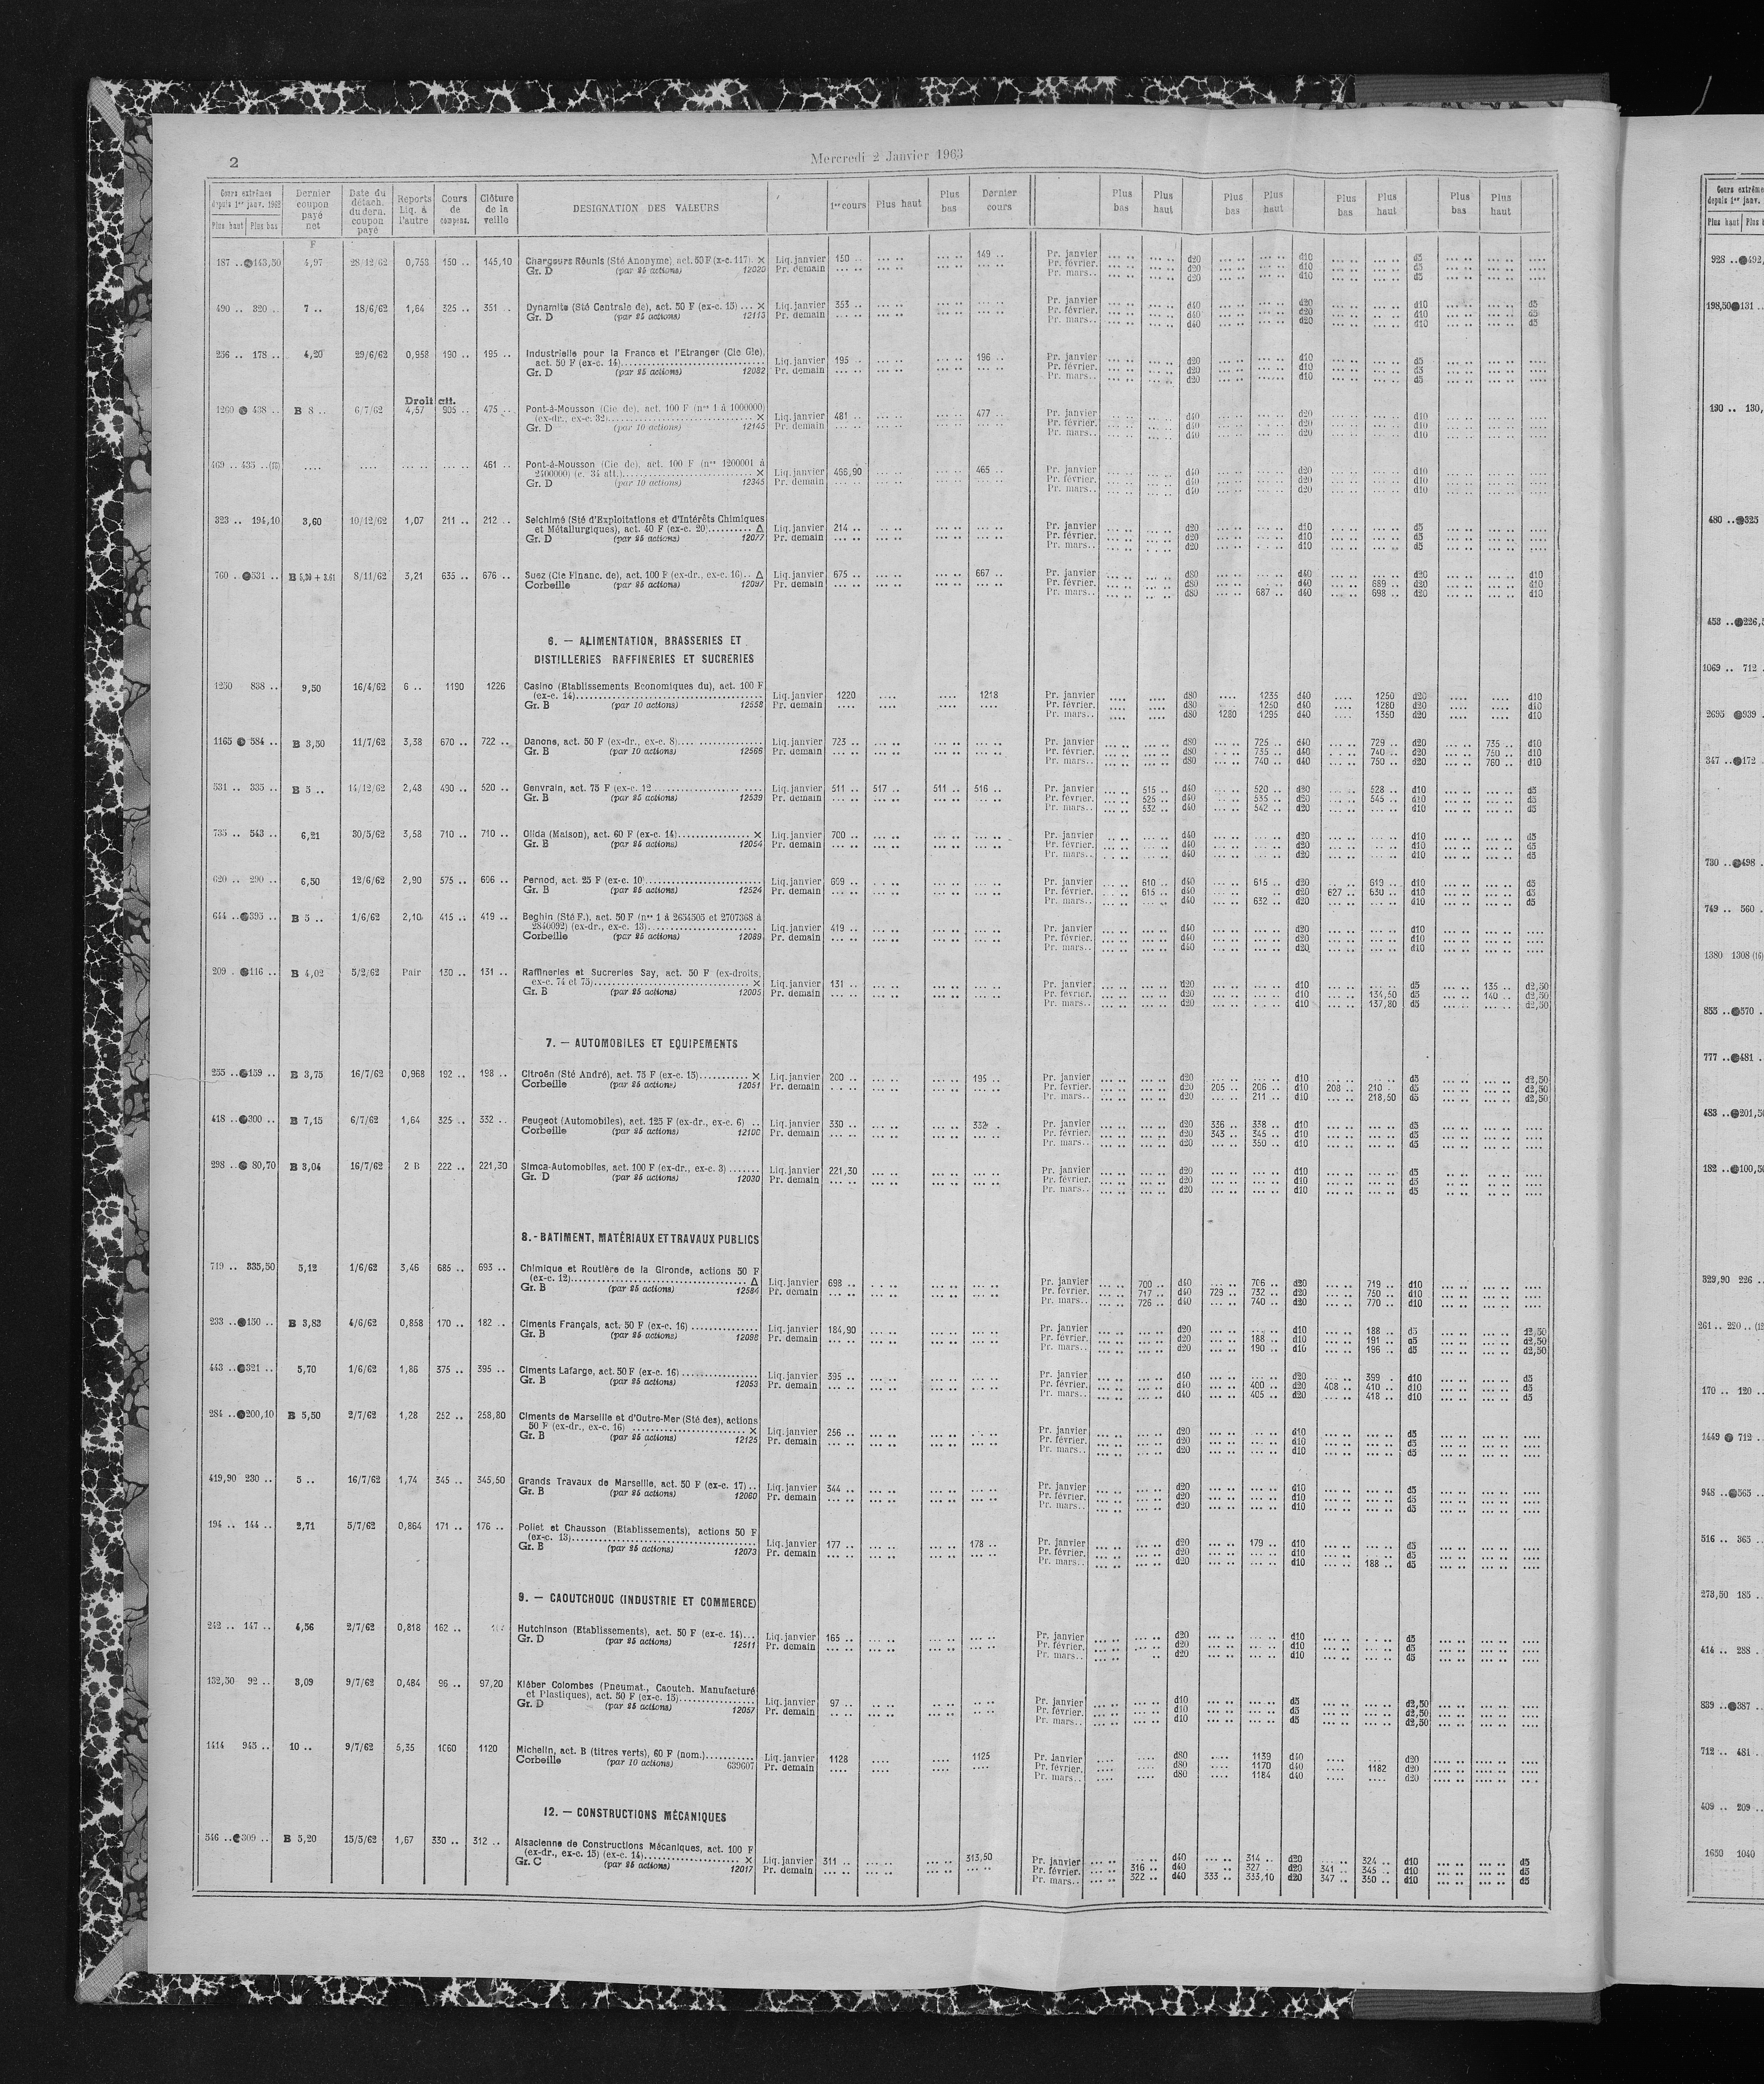 2
Mercredi 2 Janvier 1963
Cours extrêmes depuis 1er janv. 1962 Plus haut Plus bas | Dernier coupon payé net | Date du détach. du dern. coupon payé | Reports Liq. à l'autre | Cours de compens. | Clôture de la veille | DESIGNATION DES VALEURS | 1er cours | Plus haut | Plus bas | Dernier cours | Plus bas | Plus haut | Plus bas | Plus haut | Plus bas | Plus haut | Plus bas | Plus haut
F
187 .. 143,50 4,97 28/12/62 0,753 150 .. 145,10 Chargeurs Réunis (Sté Anonyme), act. 50 F (x-c. 117). × Liq. janvier 150 .. 149 .. Pr. janvier d20 d10 d5
Gr. D (par 25 actions) 12020 Pr. demain Pr. février. d20 d10 d5
Pr. mars.. d20 d10 d5
490 .. 320 .. 7 .. 18/6/62 1,64 325 .. 351 .. Dynamite (Sté Centrale de), act. 50 F (ex-c. 15) ... × Liq. janvier 353 .. Pr. janvier d40 d20 d10 d5
Gr. D (par 25 actions) 12113 Pr. demain Pr. février. d40 d20 d10 d5
Pr. mars.. d40 d20 d10 d5
236 .. 178 .. 4,20 29/6/62 0,958 190 .. 195 .. Industrielle pour la France et l'Etranger (Cie Gle),
act. 50 F (ex-c. 14) Liq. janvier 195 .. 196 .. Pr. janvier d20 d10 d5
Gr. D (par 25 actions) 12082 Pr. demain Pr. février. d20 d10 d5
Pr. mars.. d20 d10 d5
Droit att.
1260 438 .. B 8 .. 6/7/62 4,57 905 .. 475 .. Pont-à-Mousson (Cie de), act. 100 F (nos 1 à 1000000)
(ex-dr., ex-c. 32) × Liq. janvier 481 .. 477 .. Pr. janvier d40 d20 d10
Gr. D (par 10 actions) 12145 Pr. demain Pr. février. d40 d20 d10
Pr. mars.. d40 d20 d10
469 .. 435 .. 461 .. Pont-à-Mousson (Cie de), act. 100 F (nos 1200001 à
2400000) (c. 34 att.) × Liq. janvier 466,90 465 .. Pr. janvier d40 d20 d10
Gr. D (par 10 actions) 12345 Pr. demain Pr. février. d40 d20 d10
Pr. mars.. d40 d20 d10
323 .. 194,10 3,60 10/12/62 1,07 211 .. 212 .. Seichimé (Sté d'Exploitations et d'Intérêts Chimiques
et Métallurgiques), act. 40 F (ex-c. 20) Δ Liq. janvier 214 .. Pr. janvier d20 d10 d5
Gr. D (par 25 actions) 12077 Pr. demain Pr. février. d20 d10 d5
Pr. mars.. d20 d10 d5
760 .. 531 .. B 5,30 + 3.61 8/11/62 3,21 635 .. 676 .. Suez (Cie Financ. de), act. 100 F (ex-dr., ex-c. 16).. Δ Liq. janvier 675 .. 667 .. Pr. janvier d80 d40 d20 d10
Corbeille (par 25 actions) 12097 Pr. demain Pr. février. d80 d40 689 .. d20 d10
Pr. mars.. d80 687 .. d40 698 .. d20 d10
6. — ALIMENTATION, BRASSERIES ET
DISTILLERIES RAFFINERIES ET SUCRERIES
1250 838 .. 9,50 16/4/62 6 .. 1190 1226 Casino (Etablissements Economiques du), act. 100 F
(ex-c. 14) Liq. janvier 1220 1218 Pr. janvier d80 1235 d40 1250 d20 d10
Gr. B (par 10 actions) 12558 Pr. demain Pr. février. d80 1250 d40 1280 d20 d10
Pr. mars.. d80 1280 1295 d40 1350 d20 d10
1165 584 .. B 3,50 11/7/62 3,38 670 .. 722 .. Danone, act. 50 F (ex-dr., ex-c. 8) Liq. janvier 723 .. Pr. janvier d80 725 .. d40 729 .. d20 735 .. d10
Gr. B (par 10 actions) 12566 Pr. demain Pr. février. d80 735 .. d40 740 .. d20 750 .. d10
Pr. mars.. d80 740 .. d40 750 .. d20 760 .. d10
531 .. 335 .. B 5 .. 14/12/62 2,48 490 .. 520 .. Genvrain, act. 75 F (ex-c. 12 Liq. janvier 511 .. 517 .. 511 .. 516 .. Pr. janvier 515 .. d40 520 .. d20 528 .. d10 d5
Gr. B (par 25 actions) 12539 Pr. demain Pr. février. 525 .. d40 535 .. d20 545 .. d10 d5
Pr. mars.. 532 .. d40 542 .. d20 d10 d5
735 .. 543 .. 6,21 30/5/62 3,58 710 .. 710 .. Olida (Maison), act. 60 F (ex-c. 14) × Liq. janvier 700 .. Pr. janvier d40 d20 d10 d5
Gr. B (par 25 actions) 12054 Pr. demain Pr. février. d40 d20 d10 d5
Pr. mars.. d40 d20 d10 d5
620 .. 290 .. 6,50 12/6/62 2,90 575 .. 606 .. Pernod, act. 25 F (ex-c. 10) Liq. janvier 609 .. Pr. janvier 610 .. d40 615 .. d20 619 .. d10 d5
Gr. B (par 25 actions) 12524 Pr. demain Pr. février. 615 .. d40 d20 627 .. 630 .. d10 d5
Pr. mars.. d40 632 .. d20 d10 d5
644 .. 395 .. B 5 .. 1/6/62 2,10 415 .. 419 .. Beghin (Sté F.), act. 50 F (nos 1 à 2654505 et 2707368 à
2840092) (ex-dr., ex-c. 13) Liq. janvier 419 .. Pr. janvier d40 d20 d10
Corbeille (par 25 actions) 12089 Pr. demain Pr. février. d40 d20 d10
Pr. mars.. d40 d20 d10
209 . 116 .. B 4,02 5/2/62 Pair 130 .. 131 .. Raffineries et Sucreries Say, act. 50 F (ex-droits,
ex-c. 74 et 75) × Liq. janvier 131 .. Pr. janvier d20 d10 d5 135 .. d2,50
Gr. B (par 25 actions) 12005 Pr. demain Pr. février. d20 d10 134,50 d5 140 .. d2,50
Pr. mars.. d20 d10 137,80 d5 d2,50
7. — AUTOMOBILES ET EQUIPEMENTS
255 .. 159 .. B 3,75 16/7/62 0,968 192 .. 198 .. Citroën (Sté André), act. 75 F (ex-c. 15) × Liq. janvier 200 .. 195 .. Pr. janvier d20 d10 d5 d2,50
Corbeille (par 25 actions) 12051 Pr. demain Pr. février. d20 205 .. 206 .. d10 208 .. 210 .. d5 d2,50
Pr. mars.. d20 211 .. d10 218,50 d5 d2,50
418 .. 300 .. B 7,15 6/7/62 1,64 325 .. 332 .. Peugeot (Automobiles), act. 125 F (ex-dr., ex-c. 6) .. Liq. janvier 330 .. 332 .. Pr. janvier d20 336 .. 338 .. d10 d5
Corbeille (par 25 actions) 12100 Pr. demain Pr. février. d20 343 .. 345 .. d10 d5
Pr. mars.. d20 350 .. d10 d5
298 .. 80,70 B 3,04 16/7/62 2 B 222 .. 221,30 Simca-Automobiles, act. 100 F (ex-dr., ex-c. 3) Liq. janvier 221,30 Pr. janvier d20 d10 d5
Gr. D (par 25 actions) 12030 Pr. demain Pr. février. d20 d10 d5
Pr. mars.. d20 d10 d5
8.- BATIMENT, MATÉRIAUX ET TRAVAUX PUBLICS
719 .. 335,50 5,12 1/6/62 3,46 685 .. 693 .. Chimique et Routière de la Gironde, actions 50 F
(ex-c. 12) Δ Liq. janvier 698 .. Pr. janvier 700 .. d40 706 .. d20 719 .. d10
Gr. B (par 25 actions) 12584 Pr. demain Pr. février. 717 .. d40 729 .. 732 .. d20 750 .. d10
Pr. mars.. 726 .. d40 740 .. d20 770 .. d10
233 .. 150 .. B 3,83 4/6/62 0,858 170 .. 182 .. Ciments Français, act. 50 F (ex-c. 16) Liq. janvier 184,90 Pr. janvier d20 d10 188 .. d5 d2,50
Gr. B (par 25 actions) 12098 Pr. demain Pr. février. d20 188 .. d10 191 .. d5 d2,50
Pr. mars.. d20 190 .. d10 196 .. d5 d2,50
443 .. 321 .. 5,70 1/6/62 1,86 375 .. 395 .. Ciments Lafarge, act. 50 F (ex-c. 16) Liq. janvier 395 .. Pr. janvier d40 d20 399 .. d10 d5
Gr. B (par 25 actions) 12053 Pr. demain Pr. février. d40 400 .. d20 408 .. 410 .. d10 d5
Pr. mars.. d40 405 .. d20 418 .. d10 d5
284 .. 200,10 B 5,50 2/7/62 1,28 252 .. 258,80 Ciments de Marseille et d'Outre-Mer (Sté des), actions
50 F (ex-dr., ex-c. 16) × Liq. janvier 256 .. Pr. janvier d20 d10 d5
Gr. B (par 25 actions) 12125 Pr. demain Pr. février. d20 d10 d5
Pr. mars.. d20 d10 d5
419,90 230 .. 5 .. 16/7/62 1,74 345 .. 345,50 Grands Travaux de Marseille, act. 50 F (ex-c. 17) .. Liq. janvier 344 .. Pr. janvier d20 d10 d5
Gr. B (par 25 actions) 12060 Pr. demain Pr. février. d20 d10 d5
Pr. mars.. d20 d10 d5
194 .. 144 .. 2,71 5/7/62 0,864 171 .. 176 .. Poliet et Chausson (Etablissements), actions 50 F
(ex-c. 13) Liq. janvier 177 .. 178 .. Pr. janvier d20 179 .. d10 d5
Gr. B (par 25 actions) 12073 Pr. demain Pr. février. d20 d10 d5
Pr. mars.. d20 d10 188 .. d5
9. — CAOUTCHOUC (INDUSTRIE ET COMMERCE)
242 .. 147 .. 4,56 2/7/62 0,818 162 .. Hutchinson (Etablissements), act. 50 F (ex-c. 14)... Liq. janvier 165 .. Pr. janvier d20 d10 d5
Gr. D (par 25 actions) 12511 Pr. demain Pr. février. d20 d10 d5
Pr. mars.. d20 d10 d5
132,50 92 .. 3,09 9/7/62 0,484 96 .. 97,20 Kléber Colombes (Pneumat., Caoutch. Manufacturé
et Plastiques), act. 50 F (ex-c. 15) Liq. janvier 97 .. Pr. janvier d10 d5 d2,50
Gr. D (par 25 actions) 12057 Pr. demain Pr. février. d10 d5 d2,50
Pr. mars.. d10 d5 d2,50
1414 945 .. 10 .. 9/7/62 5,35 1060 1120 Michelin, act. B (titres verts), 60 F (nom.) Liq. janvier 1128 1125 Pr. janvier d80 1139 d40 d20
Corbeille (par 10 actions) 639607 Pr. demain Pr. février. d80 1170 d40 1182 d20
Pr. mars.. d80 1184 d40 d20
12. — CONSTRUCTIONS MÉCANIQUES
546 .. 309 .. B 5,20 15/5/62 1,67 330 .. 312 .. Alsacienne de Constructions Mécaniques, act. 100 F
(ex-dr., ex-c. 15) (ex-c. 14) × Liq. janvier 311 .. 313,50 Pr. janvier d40 314 .. d20 324 .. d10 d5
Gr. C (par 25 actions) 12017 Pr. demain Pr. février. 316 .. d40 327 .. d20 341 .. 345 .. d10 d5
Pr. mars.. 322 .. d40 333 .. 333,10 d20 347 .. 350 .. d10 d5
Cours extrême
depuis 1er janv.
Plus haut Plus
928 .. 492,
198,50 131 ..
190 .. 130,
480 .. 325
453 .. 226,5
1069 .. 712 .
2695 939 .
347 .. 172 .
730 .. 498 .
749 .. 560 .
1380 1308 (16)
855 .. 570 .
777 .. 481 .
483 .. 201,50
182 .. 100,50
329,90 226 ..
261 .. 220 .. (12
170 .. 120 ..
1449 712 ..
948 .. 565 ..
516 .. 365 ..
273,50 185 ..
414 .. 288 ..
839 .. 387 ..
712 .. 481 ..
409 .. 209 ..
1650 1040